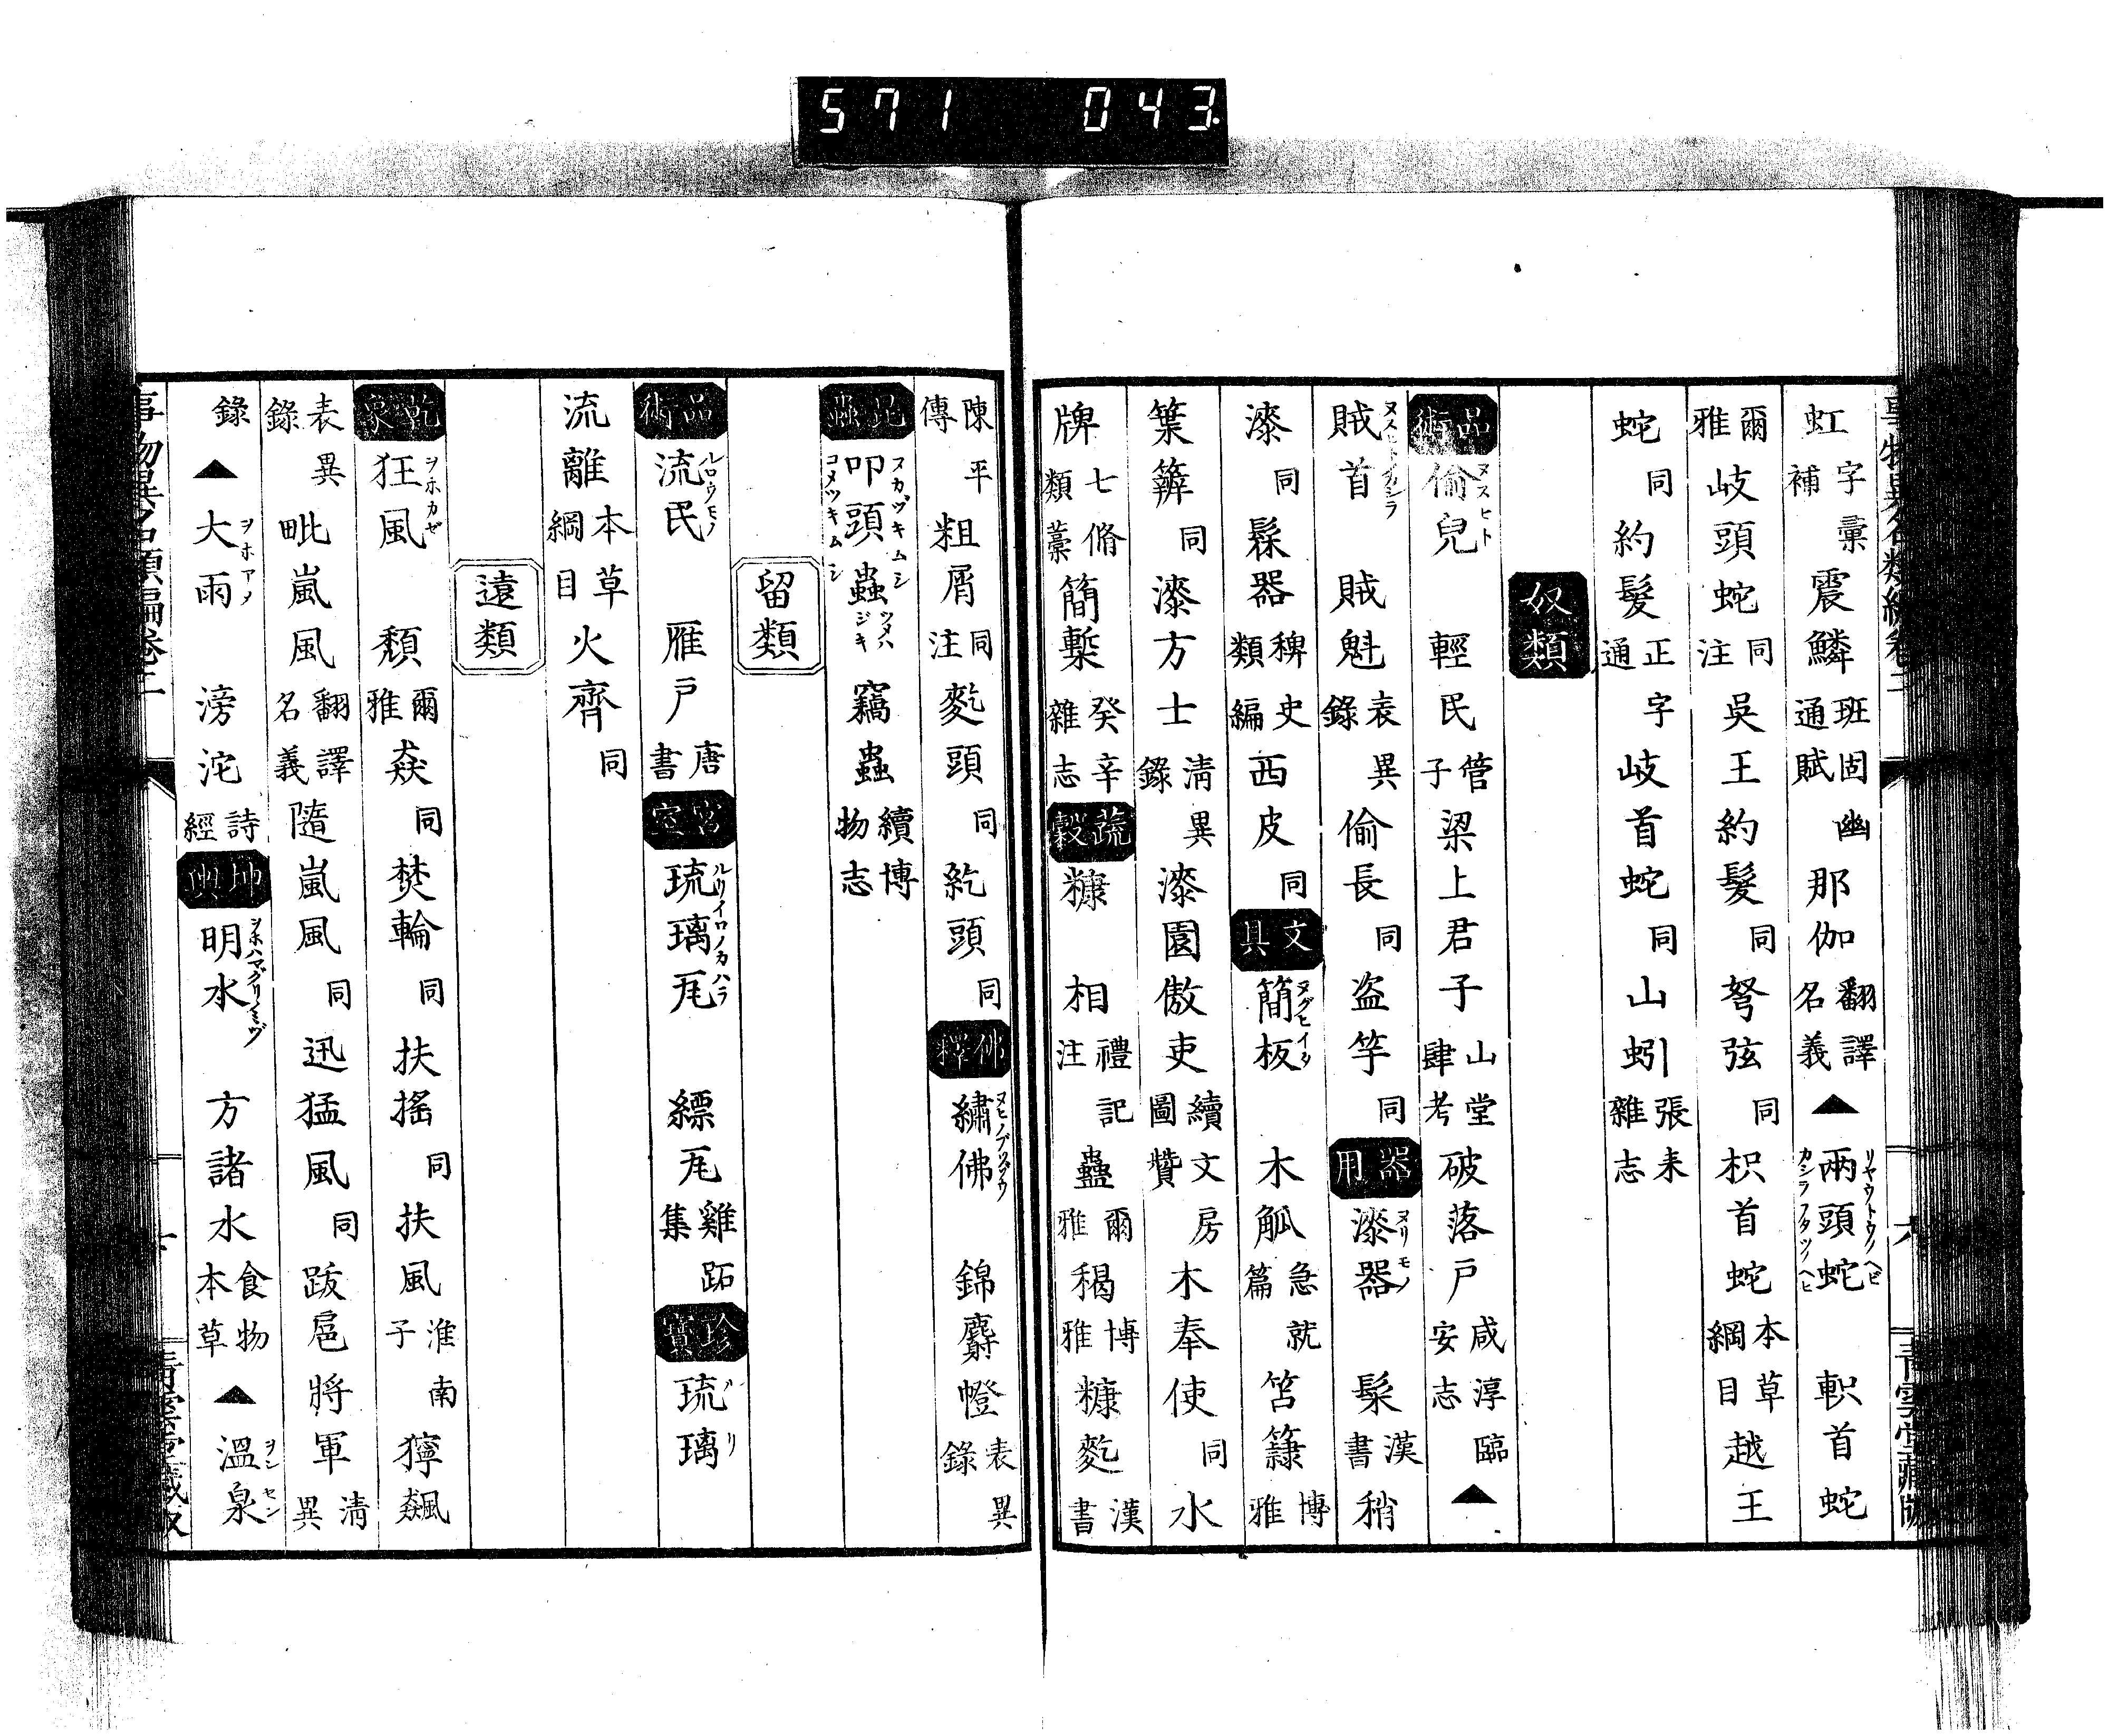 571 043
虹 字彙補 震鱗 班固幽通賦 那伽 翻譯名義 ▲ 兩頭蛇 リヤウトウノヘビ カシラフタツノヘビ 軹首蛇
爾雅 岐頭蛇 同注 吳王約髮 同 弩弦 同 枳首蛇 本草綱目 越王
蛇 同 約髮 正字通 岐首蛇 同 山蚓 張耒雜志
奴類
品術 偷兒 ヌスヒト 輕民 管子 梁上君子 山堂肆考 破落戶 咸淳臨安志 ▲
賊首 ヌスヒトカシラ 賊魁 表異錄 偷長 同 盗竿 同 器用 漆器 ヌリモノ 髹 漢書 稍
漆 同 髹器 稗史類編 西皮 同 文具 簡板 ヌグヒイタ 木觚 急就篇 笘籙 博雅
葉簳 同 漆方士 清異錄 漆園傲吏 續文房圖贊 木奉使 同 水
牌 七脩類藁 簡槧 癸辛雜志 蔬穀 糠 相 禮記注 蠱 爾雅 䅥 博雅 糠麧 漢書
陳平傳 粗屑 同注 麧頭 同 紇頭 同 佛釋 繡佛 ヌヒノブツザウ 錦麝幢 表異錄
昆蟲 叩頭蟲 ヌカヅキムシ コメツキムシ ツメハジキ 竊蟲 續博物志
留類
品術 流民 ルロウモノ 雁戶 唐書 宮室 琉璃瓦 ルリイロノカハラ 縹瓦 雞跖集 珍寶 琉璃 ルリ
流離 本草綱目 火齊 同
遠類
乾象 狂風 ヲホカゼ 頹 爾雅 猋 同 焚輪 同 扶搖 同 扶風 淮南子 獰飆
表異錄 毗嵐風 翻譯名義 隨嵐風 同 迅猛風 同 跋扈將軍 清異
錄 ▲ 大雨 ヲホアメ 滂沱 詩經 坤輿 明水 ヲホハマグリノミヅ 方諸水 食物本草 ▲ 溫泉 ヲンセン